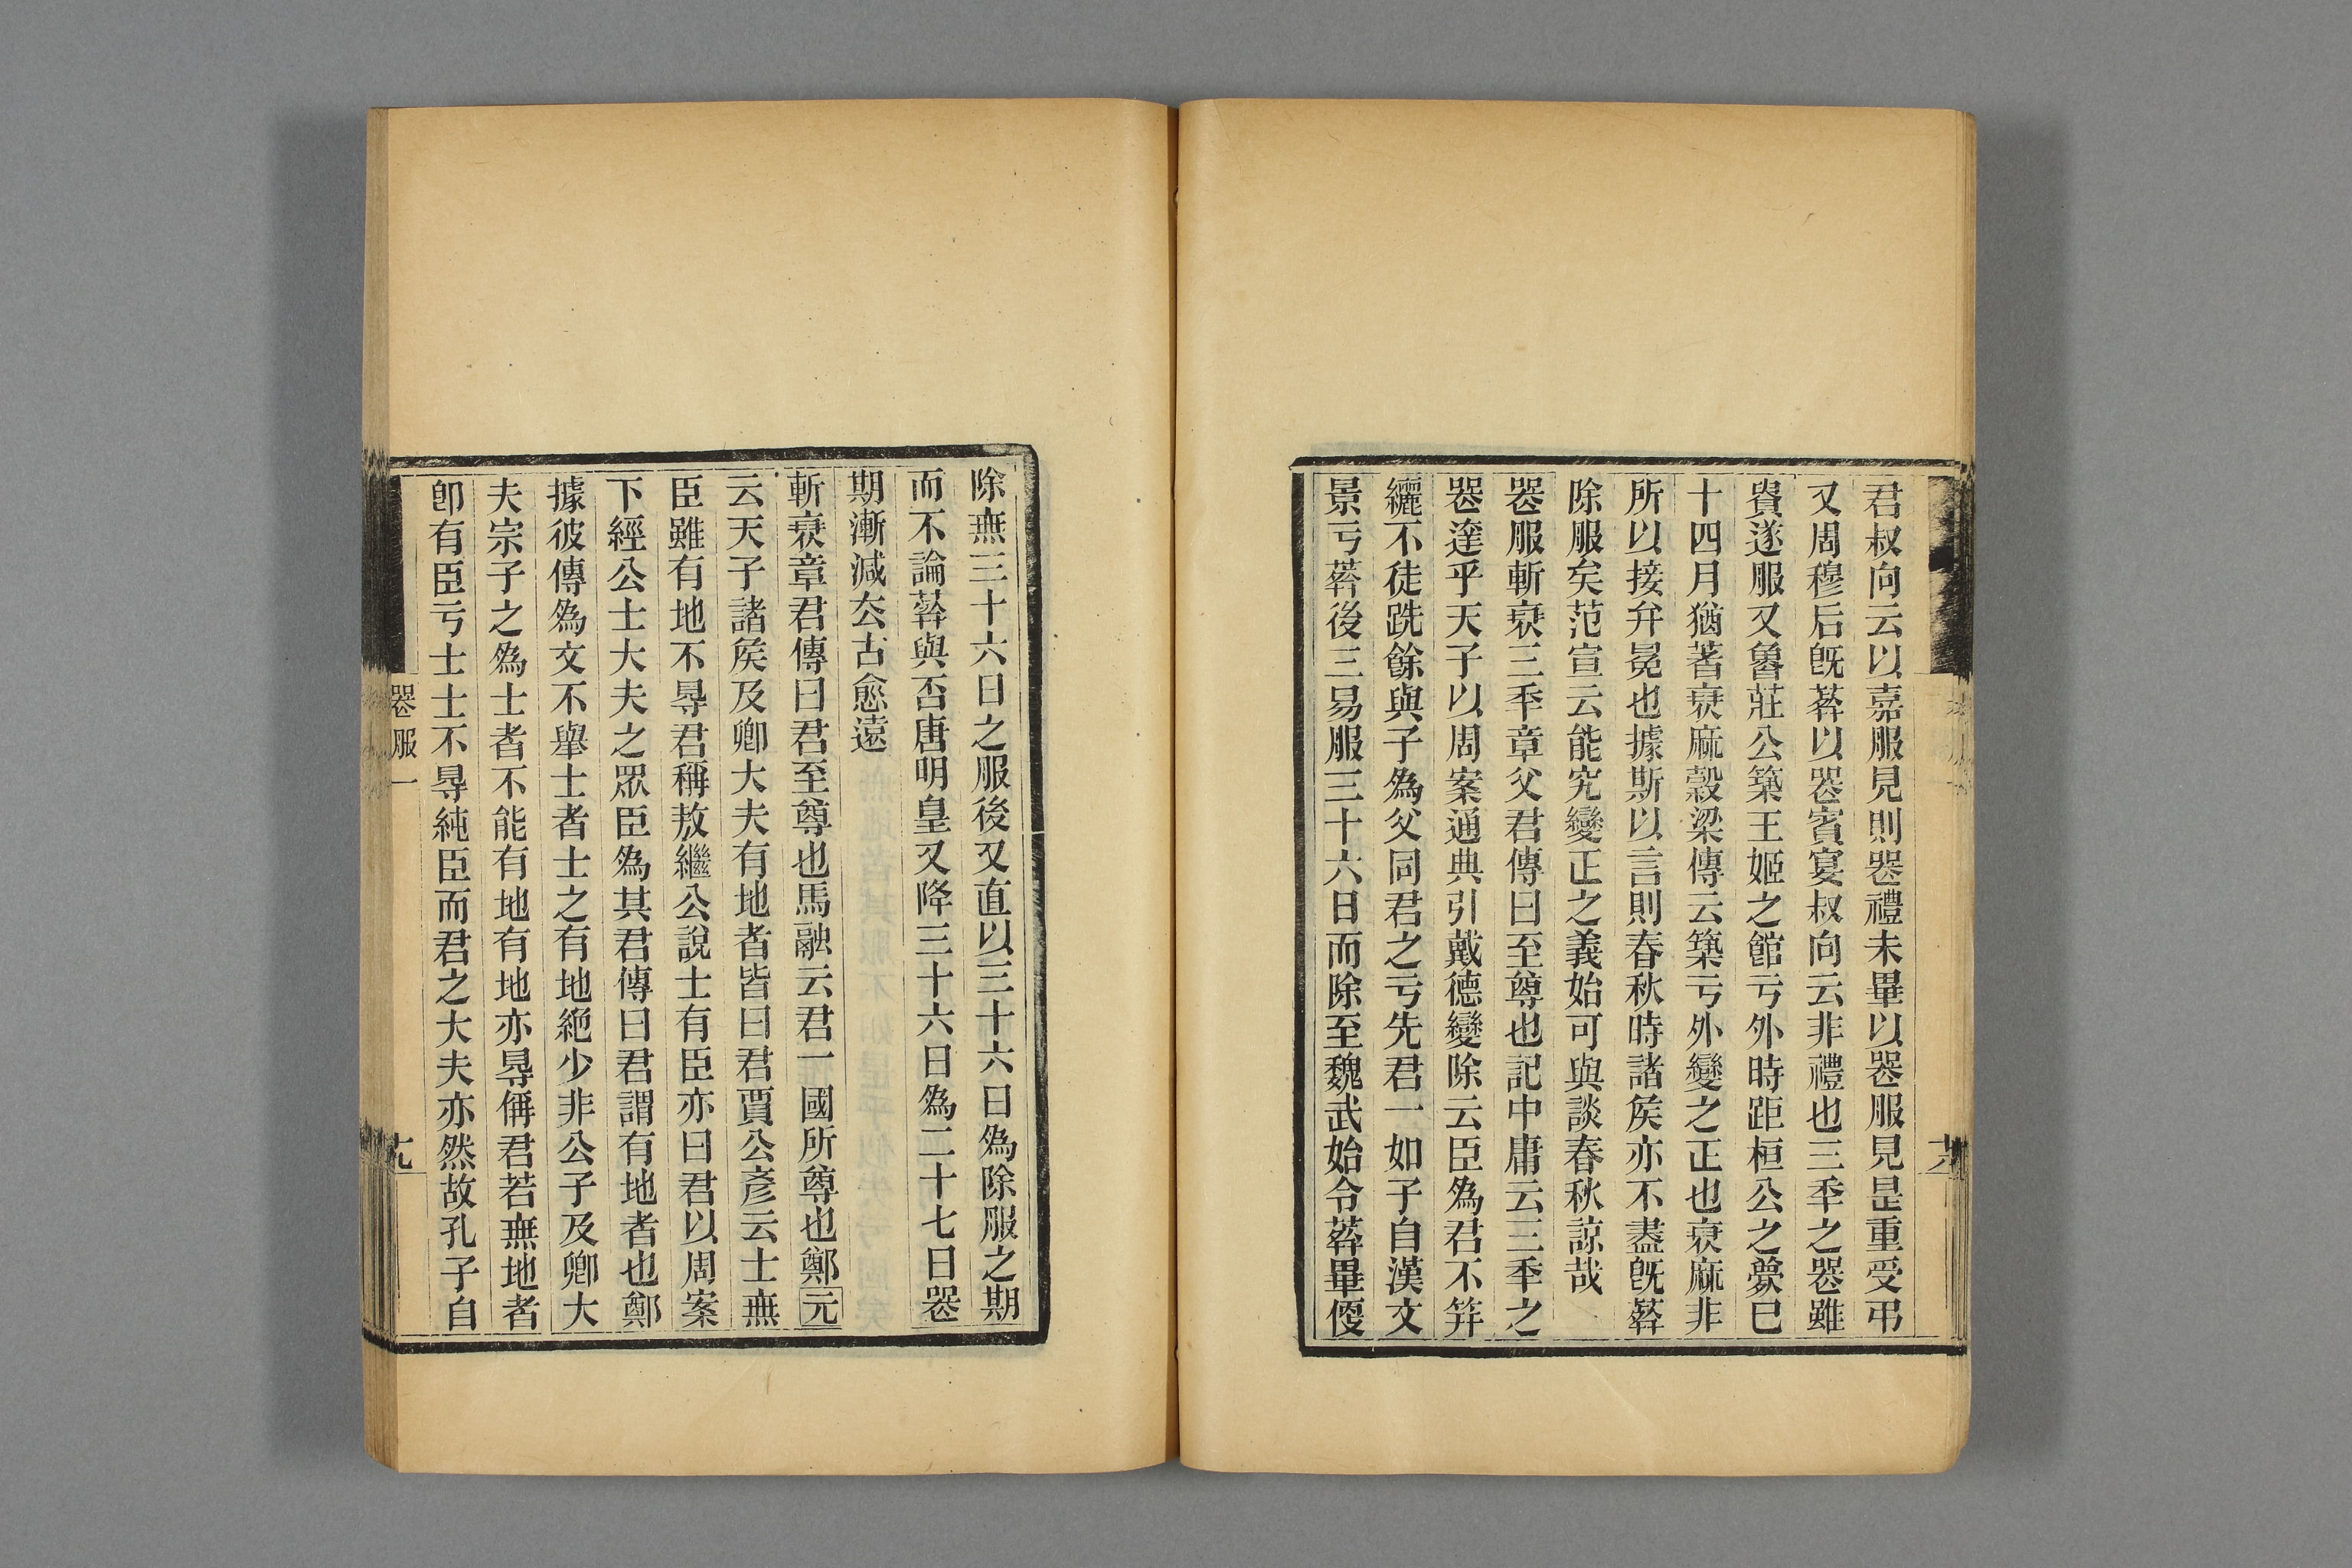 君叔向云以嘉服見則喪禮未畢以喪服見是重受弔
又周穆后旣葬以喪賓宴叔向云非禮也三秊之喪雖
貴遂服又魯莊公築王姬之館亏外時距桓公之薨巳
十四月猶著衰麻穀梁傳云築亏外變之正也衰麻非
所以接弁冕也據斯以言則春秋時諸矦亦不盡旣葬
除服矣范宣云能究變正之義始可與談春秋諒哉
喪服斬衰三秊章父君傳曰至尊也記中庸云三秊之
喪達乎天子以周案通典引戴德變除云臣爲君不筓
纚不徒跣餘與子爲父同君之亏先君一如子自漢文
景亏葬後三易服三十六日而除至魏武始令葬畢優
除無三十六日之服後又直以三十六日爲除服之期
而不論葬與否唐明皇又降三十六日爲二十七日喪
期漸減厺古愈遠
斬衰章君傳曰君至尊也馬融云君一國所尊也鄭元
云天子諸矦及卿大夫有地者皆曰君賈公彥云士無
臣雖有地不㝵君稱敖繼公說士有臣亦曰君以周案
下經公士大夫之眾臣爲其君傳曰君謂有地者也鄭
據彼傳爲文不舉士者士之有地絶少非公子及卿大
夫宗子之爲士者不能有地有地亦㝵偁君若無地者
卽有臣亏士士不㝵純臣而君之大夫亦然故孔子自
喪服一